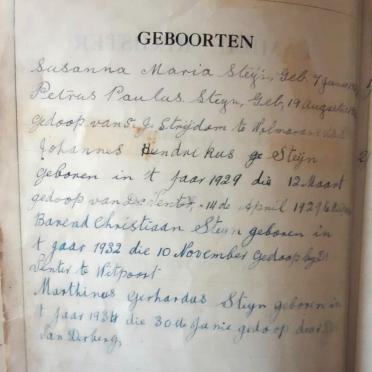 GEBOORTEN
Susanna Maria Steyn, Geb, 7 Januarie
Petrus Paulus Steyn, Geb, 19 Augustus
gedoop van J. Strijdom te Wolmarans
Johannes Hendrikus Steijn
geboren in t jaar 1929 die 12 Maart
gedoop van Ds Venter, 14 de April 1929
Barend Christiaan Steyn geboren in
t jaar 1932 die 10 November Gedoop by Ds
Venter te Witpoort
Marthinus Gerhardus Steyn geboren in
t jaar 193 die 30 de Junie gedoop deur Ds
Van Der berg